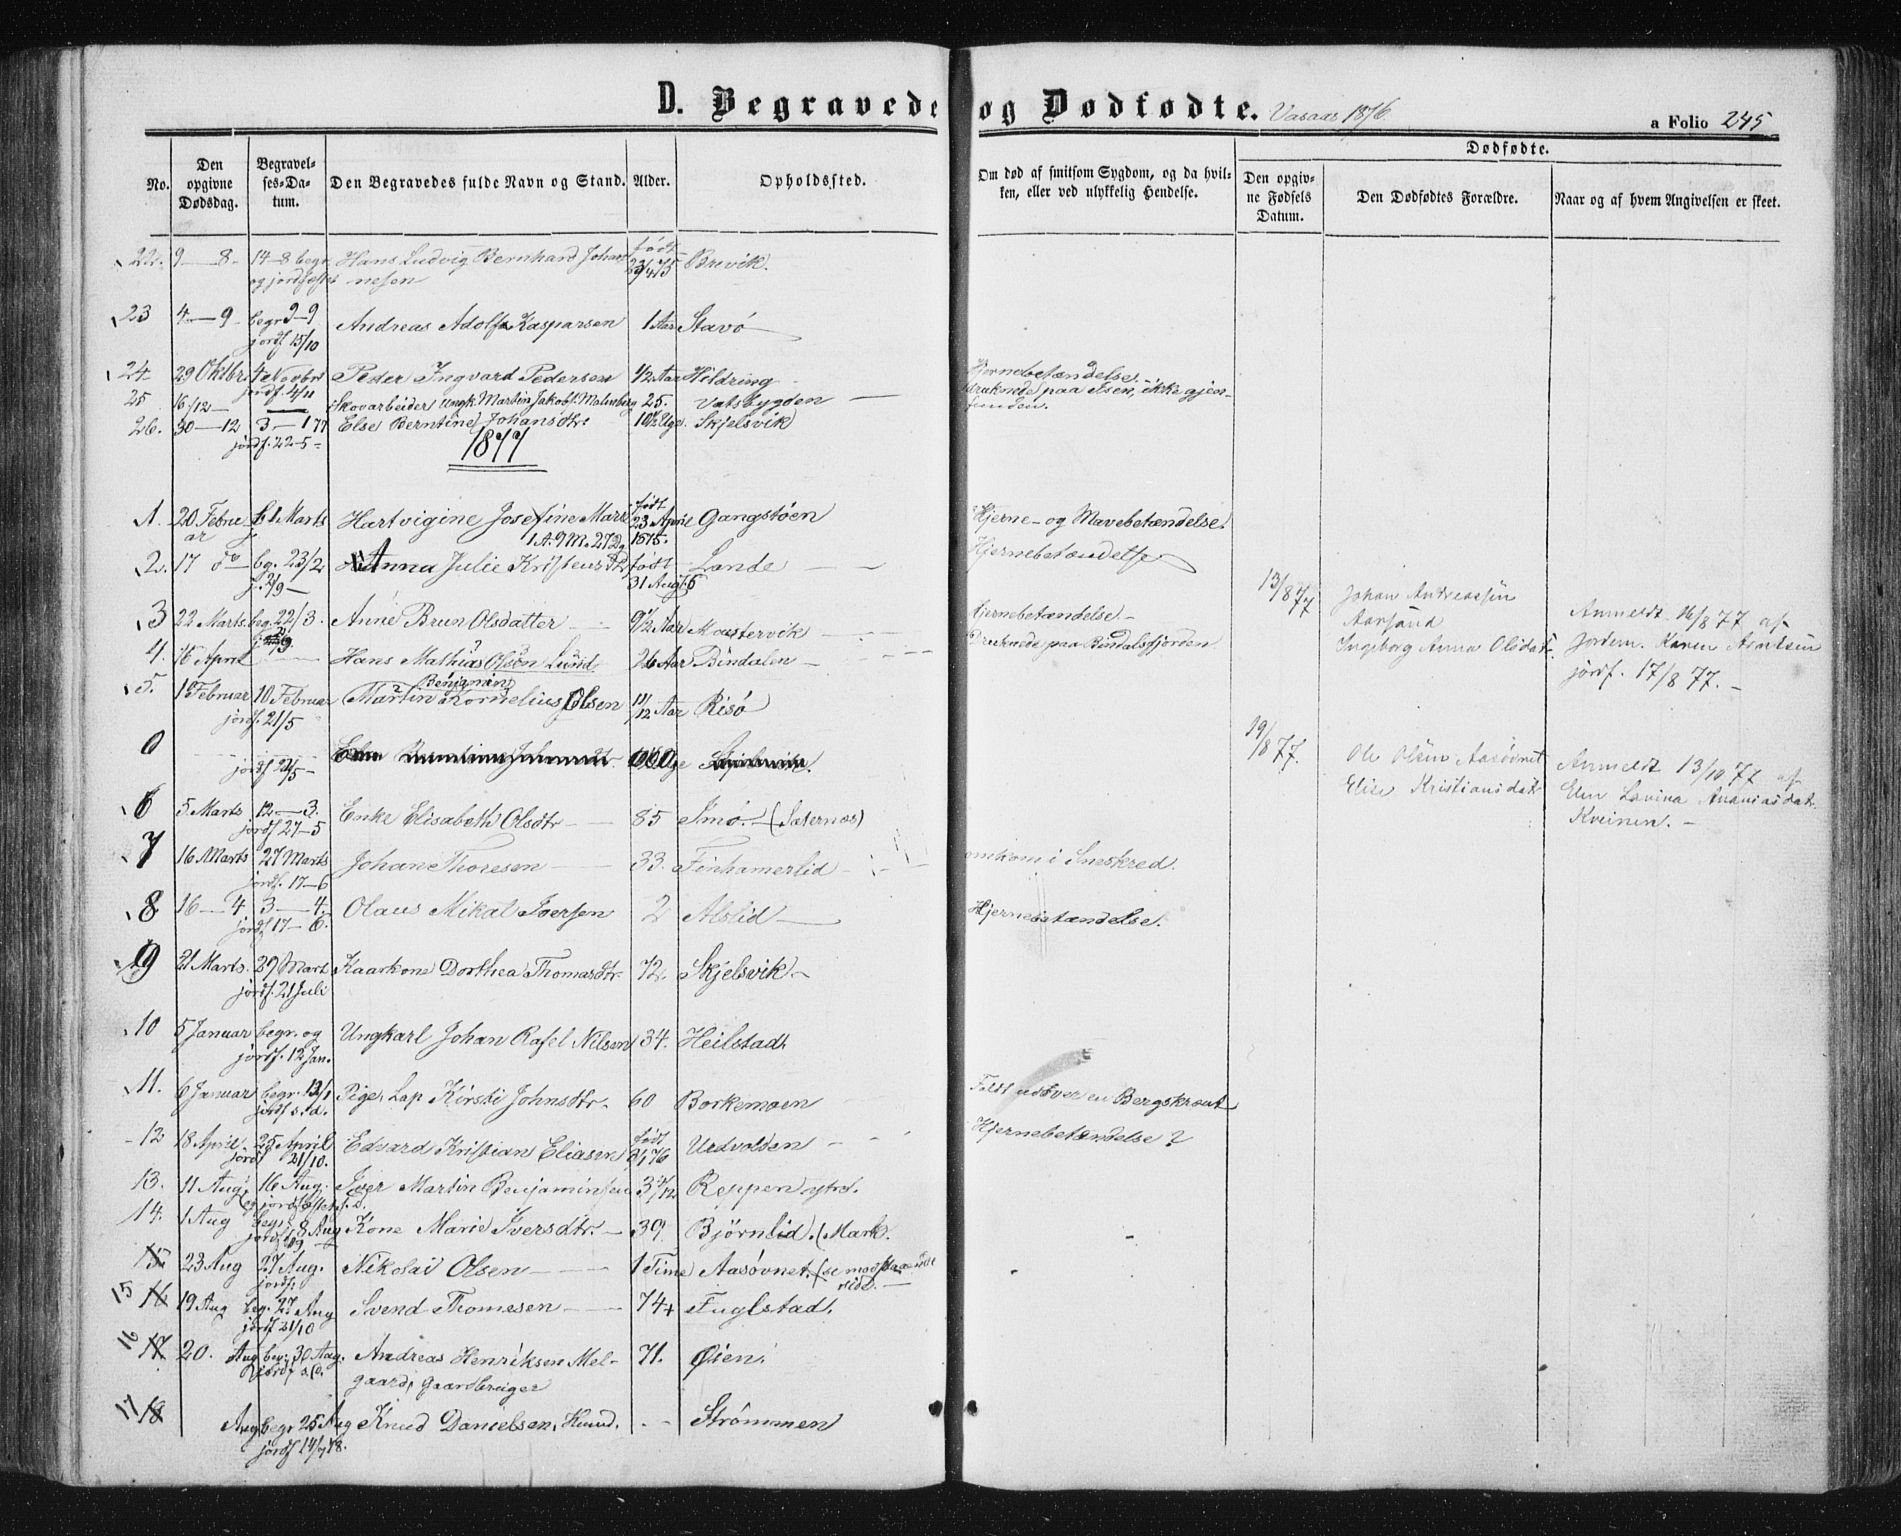 D. Begravede og Dødfødte. Vasaas 1876 a Folio 245
No.
Den opgivne Dødsdag.
Begravelses-Datum.
Den Begravedes fulde Navn og Stand.
Alder.
Opholdssted.
Om død af smitsom Sygdom, og da hvilken, eller ved ulykkelig Hendelse.
Dødfødte.
Den opgivne Fødsels Datum.
Den Dødfødtes Forældre.
Naar og af hvem Angivelsen er skeet.
22. 9—8. 14—8 begr. Hans Ludvig Bernhard Johan- født Brevik.
og jordfæstet nesen 23/4 75
23 4—9 begr 9—9 Andreas Adolf Kasparsen 1 Aar Stavø
jordf 15/10
24 29 Oktbr. 4 Novbr Peder Ingvard Pedersen 1/2 Aar Hildring Hjernebetændelse.
jordf. 4/11
25 16/12 — Skovarbeider Ungk. Martin Jakobs. Malmberg 25. Vatsbygden — druknede paa Isen, ikke gjen-
funden.
26. 30—12 3—1 77 Else Berntine Johansdtr. 10 1/2 Uge. Skjelsvik
jordf. 22-5-
1877
1. 20 Febru 1 Marts Hartvigine Josefine Marie født 23 April Gangstøen Hjerne- og Mavebetændelse.
ar 1 A. 9 M. 27 Dg 1875.
2. 17 do — bg. 23/2 Anna Julie Kristensdtr født Lande — Hjernebetændelse
31 Aug.
3 22 Marts beg. 22/3. Anne Brun Olsdatter — 9 1/2 Aar Mostervik — Hjernebetændelse —
4. 16 April — Hans Mathias Olsøn Lund 26 Aar Bindalen — Druknede paa Bindalsfjorden
5. 1 Februar 10 Februar Martin Kornelius Olsen 11/12 Aar Risø
Benjamin
jordf. 21/5
0 jordf 22/5 —
6 5 Marts 12—3. Enke Elisabeth Olsdtr — 85 Imø. — (Sæternæs)
jordf 27—5
7 16 Marts 27 Marts Johan Thoresen — 33. Finhamerlid — omkom i Sneskred.
jordf. 17—6
8 16—4 3—4. Olaus Mikal Iversen 2 Alslid — Hjernebetændelse.
jordf 17—6.
9 21 Marts 29 Mart Kaarkone Dorthea Thomasdtr. 72. Skjelsvik —
jordf. 21 Juli
10 5 Januar begr. og Ungkarl Johan Rafel Nilsen 34. Heilstad.
jordf. 12 Jan.
11. 6 Januar begr. 12/1 Pige, Lap Kirsti Johnsdtr. 60 Borkemoen Faldt udover en Bergskrænt
jordf s. d.
12 18 April. 25 April Edvard Kristian Eliasen født Urdvolden — Hjernebetændelse ?
jordf 21/10.
13. 11 Aug. 16 Aug. Iver Martin Benjaminsen Reppen ytre.
og jordfæstet s. D.
14. 1 Aug begr. 8 Aug Kone Marie Iversdtr. — 39. Bjørnlid. (Mark.
15 23 Aug 27 Aug. Nikolai Olsen — 1 Time Aasøvnet. (se modstaaende
jordf. side. —
15 16 19 Aug beg. 27 Aug Svend Thomesen — 74 Fuglstad.
jordf 21/10
16 17 20. Aug beg. 30 Aug. Andreas Henriksen Mel- 71. Øien.
jordf s. D. gaard, Gaardbruger
17 18 Aug begr 25 Aug Knud Danielsen, — Strømmen
jordf 14/7 78.
13/8 77 Johan Andreassen Anmeldt 16/8 77 af
Aarsand Jordem. Karen Arntsen
Ingeborg Anna Olsdatr. jordf. 17/8 77. —
19/8 77. Ole Olsen Aasøvnet Anmeldt 13/10 77 af
Elise Kristiansdatr Elen Lovina Ananiasdatr.
Kveinen. —